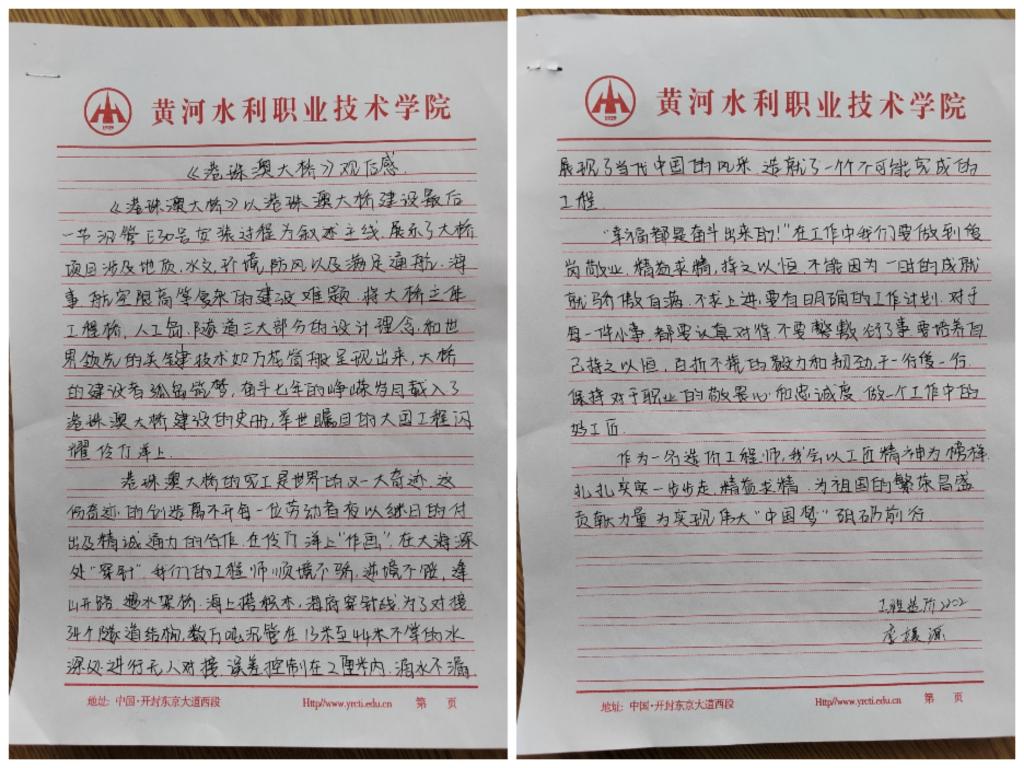 黄河水利职业技术学院
《港珠澳大桥》观后感.
《港珠澳大桥》以港珠澳大桥建设最后
一节沉管E30号安装过程为叙述主线.展示了大桥
项目涉及地质.水文.环境.防风以及满足通航.海
事.航空限高等复杂的建设难题.将大桥主体
工程桥.人工岛.隧道三大部分的设计理念.和世
界领先的关键技术如万花筒般呈现出来,大桥
的建设者孤岛筑梦,奋斗七年的峥嵘岁月载入了
港珠澳大桥建设的史册,举世瞩目的大国工程闪
耀伶仃洋上.
港珠澳大桥的完工是世界的又一大奇迹.这
份奇迹的创造离不开每一位劳动者夜以继日的付
出及精诚通力的合作.在伶仃洋上"作画".在大海深
处"穿针".我们的工程师顺境不骄.逆境不馁,逢
山开路.遇水架桥.海上搭积木,海底穿针线.为了对接
34个隧道结构,数万吨沉管在13米至44米不等的水
深处进行无人对接.误差控制在2厘米内.滴水不漏
地址:中国·开封东京大道西段
Http//www.yrcti.edu.cn
第 页
黄河水利职业技术学院
展现了当代中国的风采.造就了一个个不可能完成的
工程.
"幸福都是奋斗出来的!"在工作中我们要做到爱
岗敬业.精益求精,持之以恒.不能因为一时的成就
就骄傲自满.不求上进.要有明确的工作计划.对于
每一件小事.都要认真对待不要敷衍了事要培养自
己持之以恒.百折不挠的毅力和韧劲.干一行爱一行.
保持对于职业的敬畏心和忠诚度.做一个工作中的
好工匠.
作为一名造价工程师,我会以工匠精神为榜样
扎扎实实一步步走.精益求精.为祖国的繁荣昌盛
贡献力量.为实现伟大"中国梦"砥砺前行.
工程造价2202
李媛源
地址:中国·开封东京大道西段
Http//www.yrcti.edu.cn
第 页